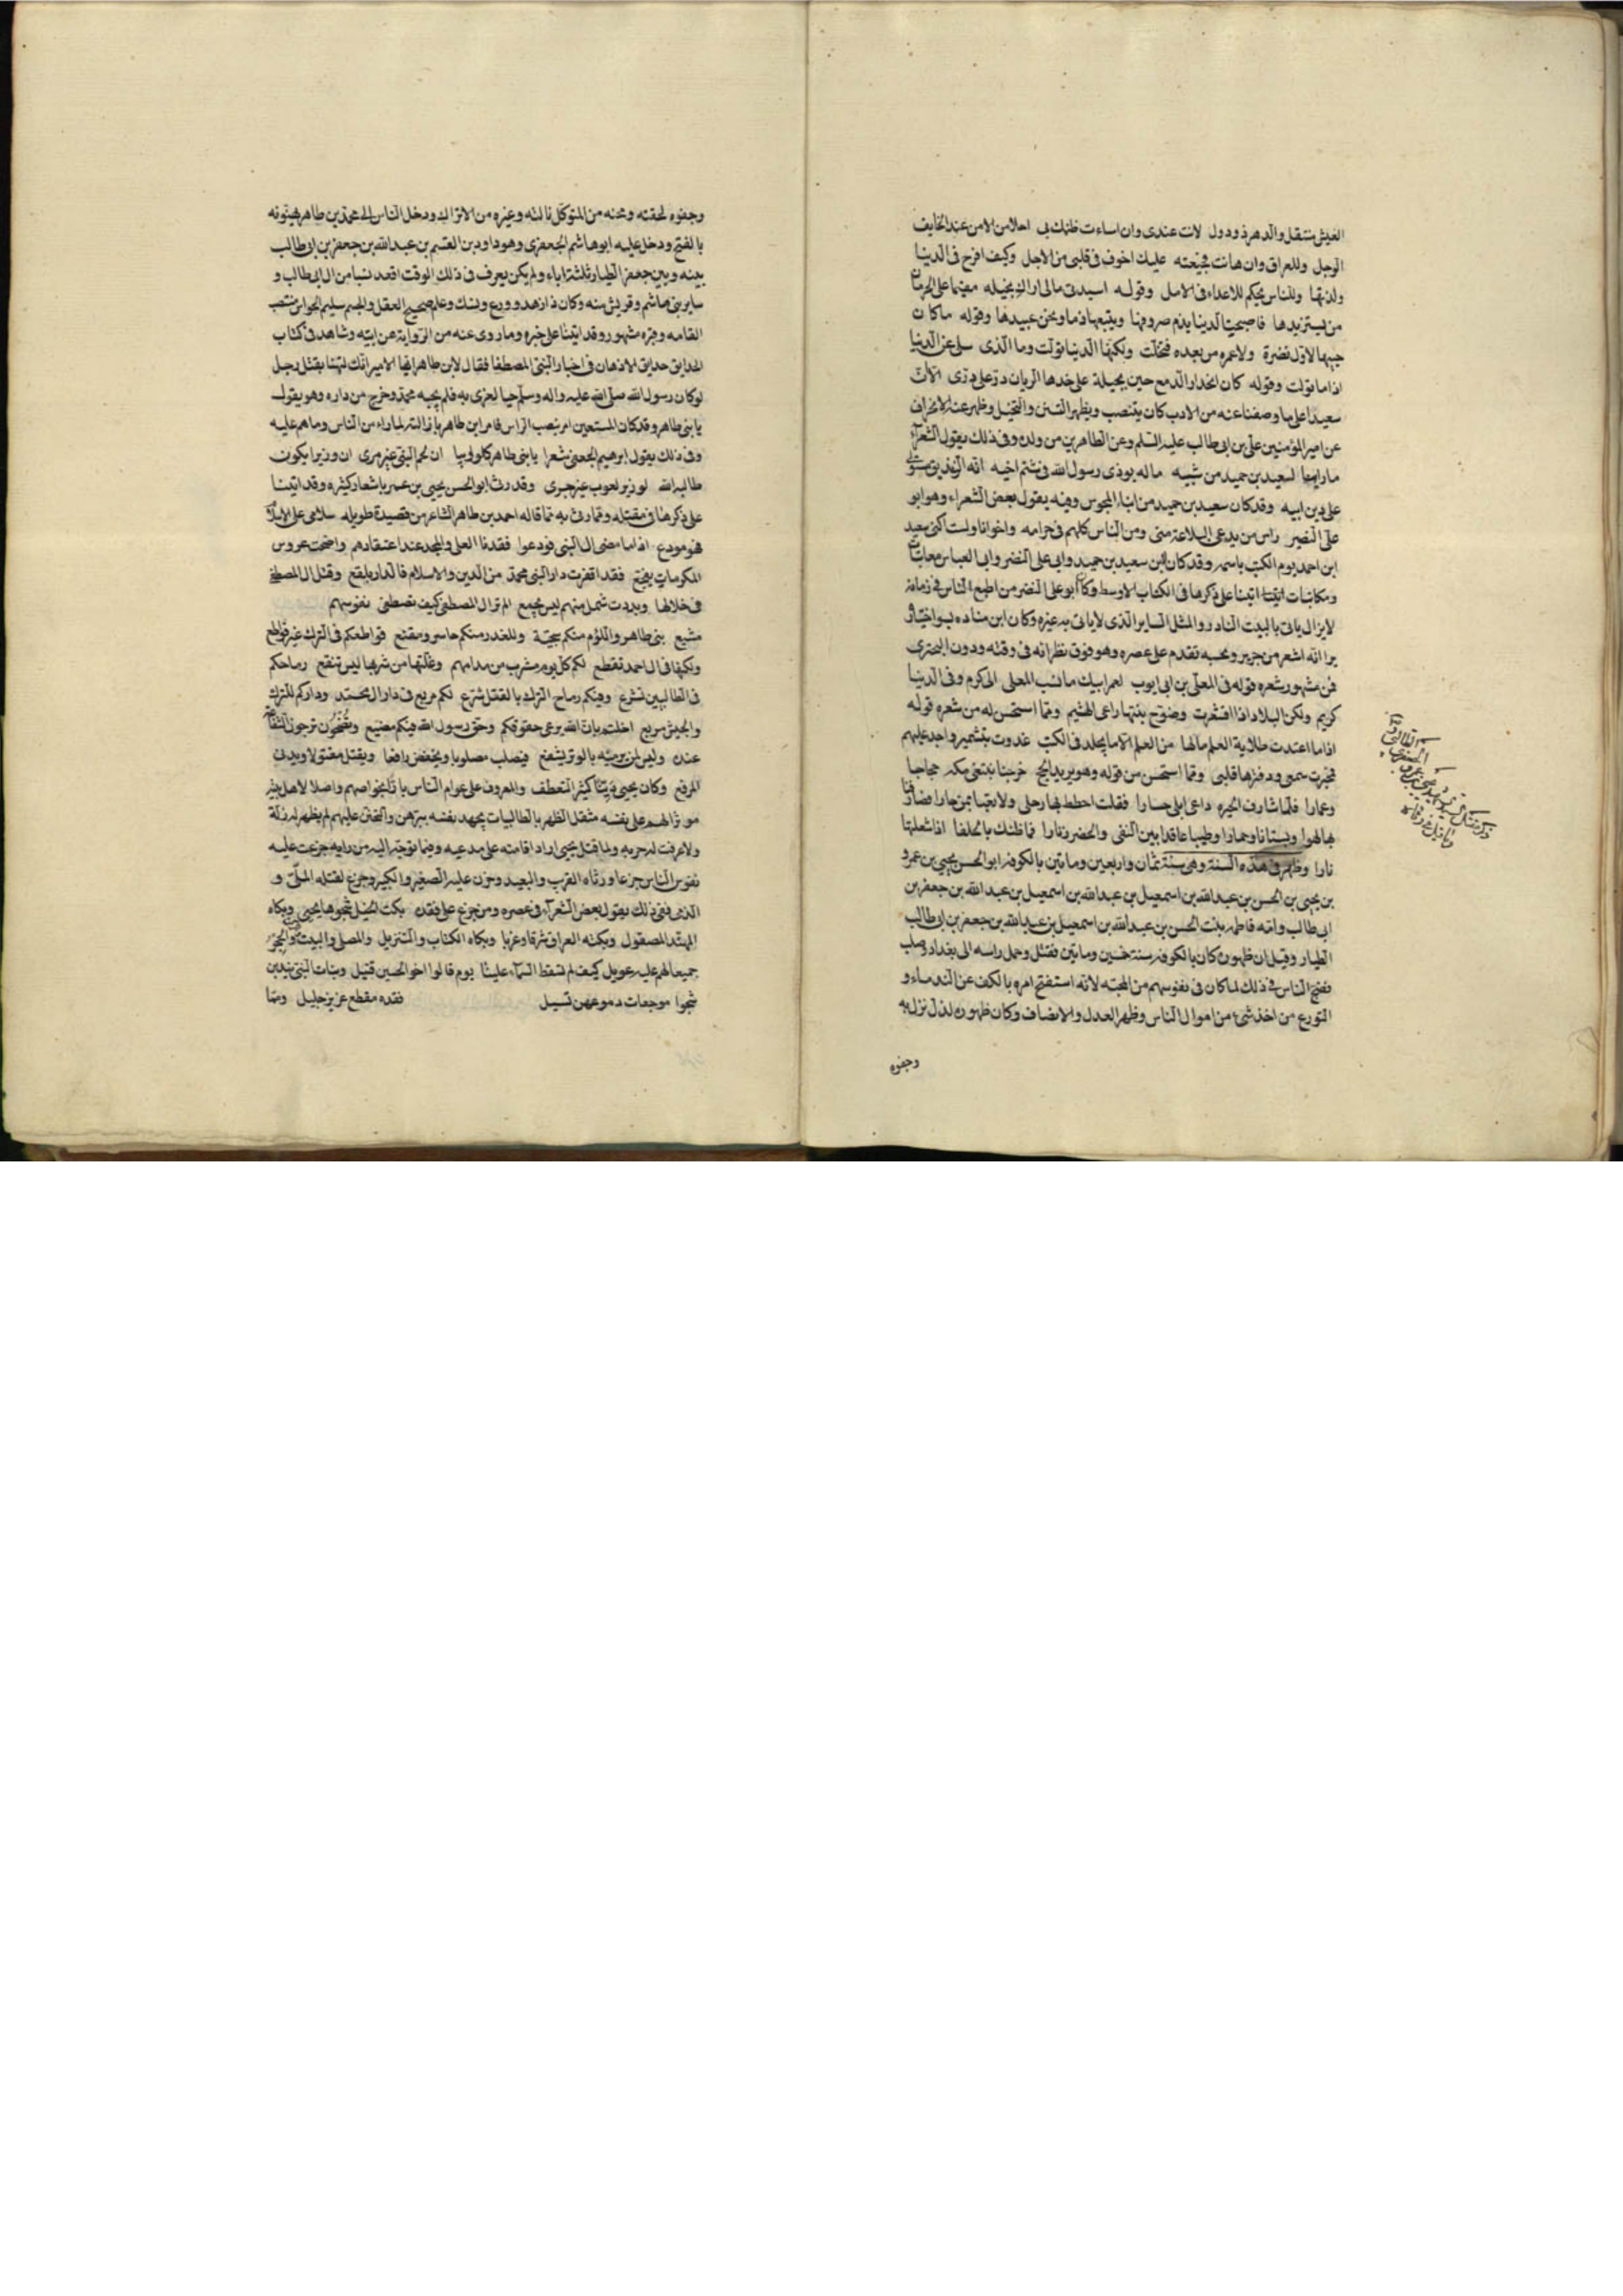 العيش منتقل والدهر ذو دول لانت عندى وان اساءت ظنك بى احلا من الامن عند الخايف
الوجل وللعراق وان هانت عليك اخوف فى قلبى من الاجل وكيف افرح فى الدنيا
ولذتها وللناس يحكم للاعداء فى الامل وقوله اسيدتى مالى اراك بخيله مقيما على الحرمان
من يستزيدها فاصبحت الدنيا يذم صروفها ويتبعها ذما ونحن عبيدها وقوله ما كان
حبها لاول نضرة ولا غمره من بعده فتخلت ولكنها الدنيا تولت وما الذى سلى عن الدنيا
اذا ما تولت وقوله كان انحدار الدمع حين يجيله على خدها الريان در على در الا ان
سعيدا على ما وصفنا عنه من الادب كان يتنصب ويظهر التسنن والتحيل وظهر عنه الانحراف
عن امير المؤمنين على بن ابى طالب عليه السلم وعن الطاهرين من ولده وفى ذلك يقول الشعراء
ما راينا لسعيد بن حميد من شبيه ماله يوذى رسول الله فى شتم اخيه انه الزنديق مستولى
على دين ابيه وقد كان سعيد بن حميد من ابناء المجوس وفيه يقول بعض الشعراء وهو ابو
على النضير راس من يدعى البلاغة منى ومن الناس كلهم فى حرامه واخوانا ولست اكنى سعيد
ابن احمد يوم الكتب باسمه وقد كان لابن سعيد بن حميد وابى على النضر وابى العباس معاتبات
ومكاتبات اتينا على ذكرها فى الكتاب الاوسط وكان ابو على النضر من اطبع الناس فى زمانه
لا يزال ياتى بالبيت النادر والمثل الساير الذى لا ياتى به غيره وكان ابن مناده بسو اختيار
يرا انه اشعر من جرير ويحسبه تقدم على عصره وهو فوق نظرائه فى وقته ودون البحترى
فمن مشهور شعره قوله فى المعلى بن ابى ايوب لعمر ابيك ما نسب المعلى الى كرم وفى الدنيا
كريم ولكن البلاد اذا اقشعرت وصوح بنتها راعى الهشيم ومما استحسن له من شعره قوله
اذا ما اعتدت طلابة العلم مالها من العلم الا ما يخلد فى الكتب غدوت بتشمير واجد عليهم
فمحبرتى سمعى ودفترها قلبى ومما استحسن من قوله وهو يريد الحج خرجنا نبتغى مكه حجاجا
وعمارا فلما شارف الحيره داعى ابلى حسارا فقلت احطط بها رحلى ولا تعبا بمن جارا فصادفنا
بها لهوا وبستانا وحمارا وظبيا عاقدا بين النقى والخصر زنارا فما ظنك بالحلفا اذا اشعلتها
نارا وظهر فى هذه السنة وهى سنة ثمان واربعين ومايتين بالكوفه ابو الحسن يحيى بن عمر و
بن يحيى بن الحسن بن عبد الله بن اسمعيل بن عبد الله بن اسمعيل بن عبد الله بن جعفر بن
ابى طالب وامه فاطمه بنت الحسن بن عبد الله بن اسمعيل بن عبد الله بن جعفر بن ابى طالب
الطيار وقيل ان ظهوره كان بالكوفه سنة خمسين ومايتين فقتل وحمل راسه الى بغداد وصلب
فضج الناس فى ذلك لما كان فى نفوسهم من المحبه لانه استفتح امره بالكف عن الندماء و
التورع من اخذ شىء من اموال الناس وظهر العدل والانصاف وكان ظهوره لذل نزل به
وجفوه
وجفوه لحقته ومحنه من المتوكل نالته وغيره من الاتراك ودخل الناس الى محمد بن طاهر يهنونه
بالفتح ودخل عليه ابو هاشم الجعفرى وهو داود بن القسم بن عبد الله بن جعفر بن ابى طالب
بينه وبين جعفر الطيار ثلثة اباء ولم يكن يعرف فى ذلك الوقت اقعد نسبا من ال ابى طالب و
ساير بنى هاشم وقريش منه وكان ذا زهد وورع ونسك وعلم صحيح العقل والجسم سليم الحواس منتصب
القامه وقبره مشهور وقد اتينا على خبره وما روى عنه من الرواية عن ابيه وشاهد فى كتاب
الحدايق حدايق الاذهان فى اخبار النبى المصطفا فقال لابن طاهر ايها الامير انك لتهنا بقتل رجل
لو كان رسول الله صلى الله عليه واله وسلم حيا لعزى به فلم يجبه محمد وخرج من داره وهو يقول
يا بنى طاهر وقد كان المستعين امر بنصب الراس فامر ابن طاهر بانزاله لما راء من الناس وما هم عليه
وفى ذلك يقول ابرهيم الجعفى شعرا يا بنى طاهر كلوه وبيا ان لحم النبى غير مرى ان وترا يكون
طالبه الله لوتر لعوب غير جرى وقد رثى ابو الحسن يحيى بن عمر باشعار كثيره وقد اتينا
على ذكرها فى مقتله ومما رثى به مما قاله احمد بن طاهر الشاعر من قصيدة طويله سلامى على الاسلام
فهو مودع اذا ما مضى ال النبى فودعوا فقدنا العلى والمجد عند اعتقادهم واضحت عروس
المكرمات يفجع فقد اقفرت دار النبى محمد من الدين والاسلام فالدار بلقع وقتل ال المصطفى
فى خلالها وبددت شمل منهم ليس يجمع الم تر ال المصطفى كيف تصطفى نفوسهم
مشيع بنى طاهر واللؤم منكم سجية وللغدر منكم حاسر ومقنع قواطعكم فى الترك غير قواطع
ولكنها فى ال احمد تقطع لكم كل يوم مشرب من مدامهم وغلتها من شربها ليس تنقع رماحكم
فى الطالبين تشرع وفيكم رماح الترك بالقتل شرع لكم مريع فى دار ال محمد وداركم للترك
والجيش مريع اخلت بان الله يرعى حقوقكم وحق رسول الله فيكم مضيع وتضحون ترجون الشفاعه
عنده وليس لمن يرميه بالوتر يشفع فيصلب مصلوبا ويخفض رافعا ويقتل مقتولا ويدنى
المرفع وكان يحيى دينا كثير التعطف والمعروف على عوام الناس بارا بخواصهم واصلا لاهل بيته
موثرا لهم على نفسه مثقل الظهر بالطالبيات يجهد نفسه ببرهن والتحنن عليهم لم يظهر له زلة
ولا عرفت له خربه ولما قتل يحيى جزعت عليه
نفوس الناس جزعا ورثاه القرب والبعيد وحزن عليه الصغير والكبير وجزع لقتله الملى و
الدنى ففى ذلك يقول بعض الشعراء فى عصره ومن جزع على فقده بكت الخيل شجوها يحيى وبكاه
المهند المصقول وبكته العراق شرقا وغربا وبكاه الكتاب والتنزيل والمصلى والبيت والحجر
جميعا لهم عليه عويل كيف لم تسقط السماء علينا يوم قالوا ابو الحسين قتيل وبنات النبى يندبن
شجوا موجعات دموعهن تسيل فقده مقطع عزيز جليل ومما